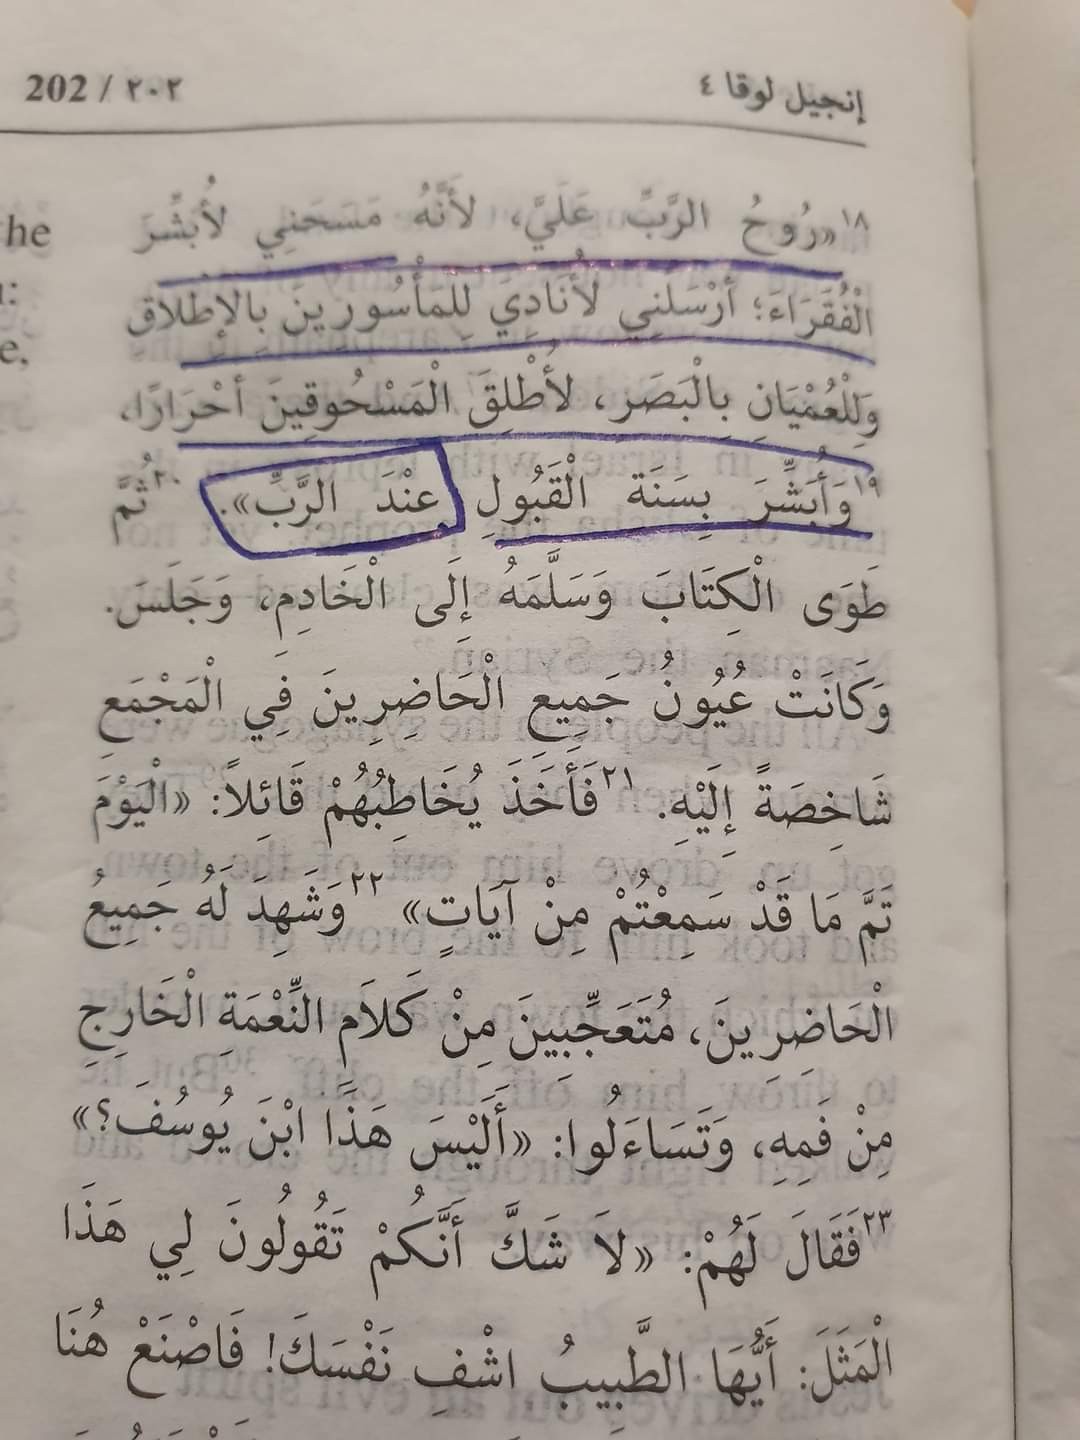 202 / ٢٠٢
إنجيل لوقا ٤
he
١٨«رُوحُ الرَّبِّ عَلَيَّ، لأَنَّهُ مَسَحَنِي لأُبَشِّرَ
الْفُقَرَاءَ؛ أَرْسَلَنِي لأُنَادِيَ لِلمَأْسُورِينَ بِالإِطْلاقِ
وَلِلْعُمْيَانِ بِالْبَصَرِ، لأُطْلِقَ الْمَسْحُوقِينَ أَحْرَارًا،
١٩وَأُبَشِّرَ بِسَنَةِ الْقَبُولِ عِنْدَ الرَّبِّ». ٢٠ثُمَّ
طَوَى الْكِتَابَ وَسَلَّمَهُ إِلَى الْخَادِمِ، وَجَلَسَ.
وَكَانَتْ عُيُونُ جَمِيعِ الْحَاضِرِينَ فِي الْمَجْمَعِ
شَاخِصَةً إِلَيْهِ. ٢١فَأَخَذَ يُخَاطِبُهُمْ قَائِلاً: «الْيَوْمَ
تَمَّ مَا قَدْ سَمِعْتُمْ مِنْ آيَاتٍ» ٢٢وَشَهِدَ لَهُ جَمِيعُ
الْحَاضِرِينَ، مُتَعَجِّبِينَ مِنْ كَلاَمِ النِّعْمَةِ الْخَارِجِ
مِنْ فَمِهِ، وَتَسَاءَلُوا: «أَلَيْسَ هَذَا ابْنَ يُوسُفَ؟»
٢٣فَقَالَ لَهُمْ: «لاَ شَكَّ أَنَّكُمْ تَقُولُونَ لِي هَذَا
الْمَثَلَ: أَيُّهَا الطَّبِيبُ اشْفِ نَفْسَكَ! فَاصْنَعْ هُنَا